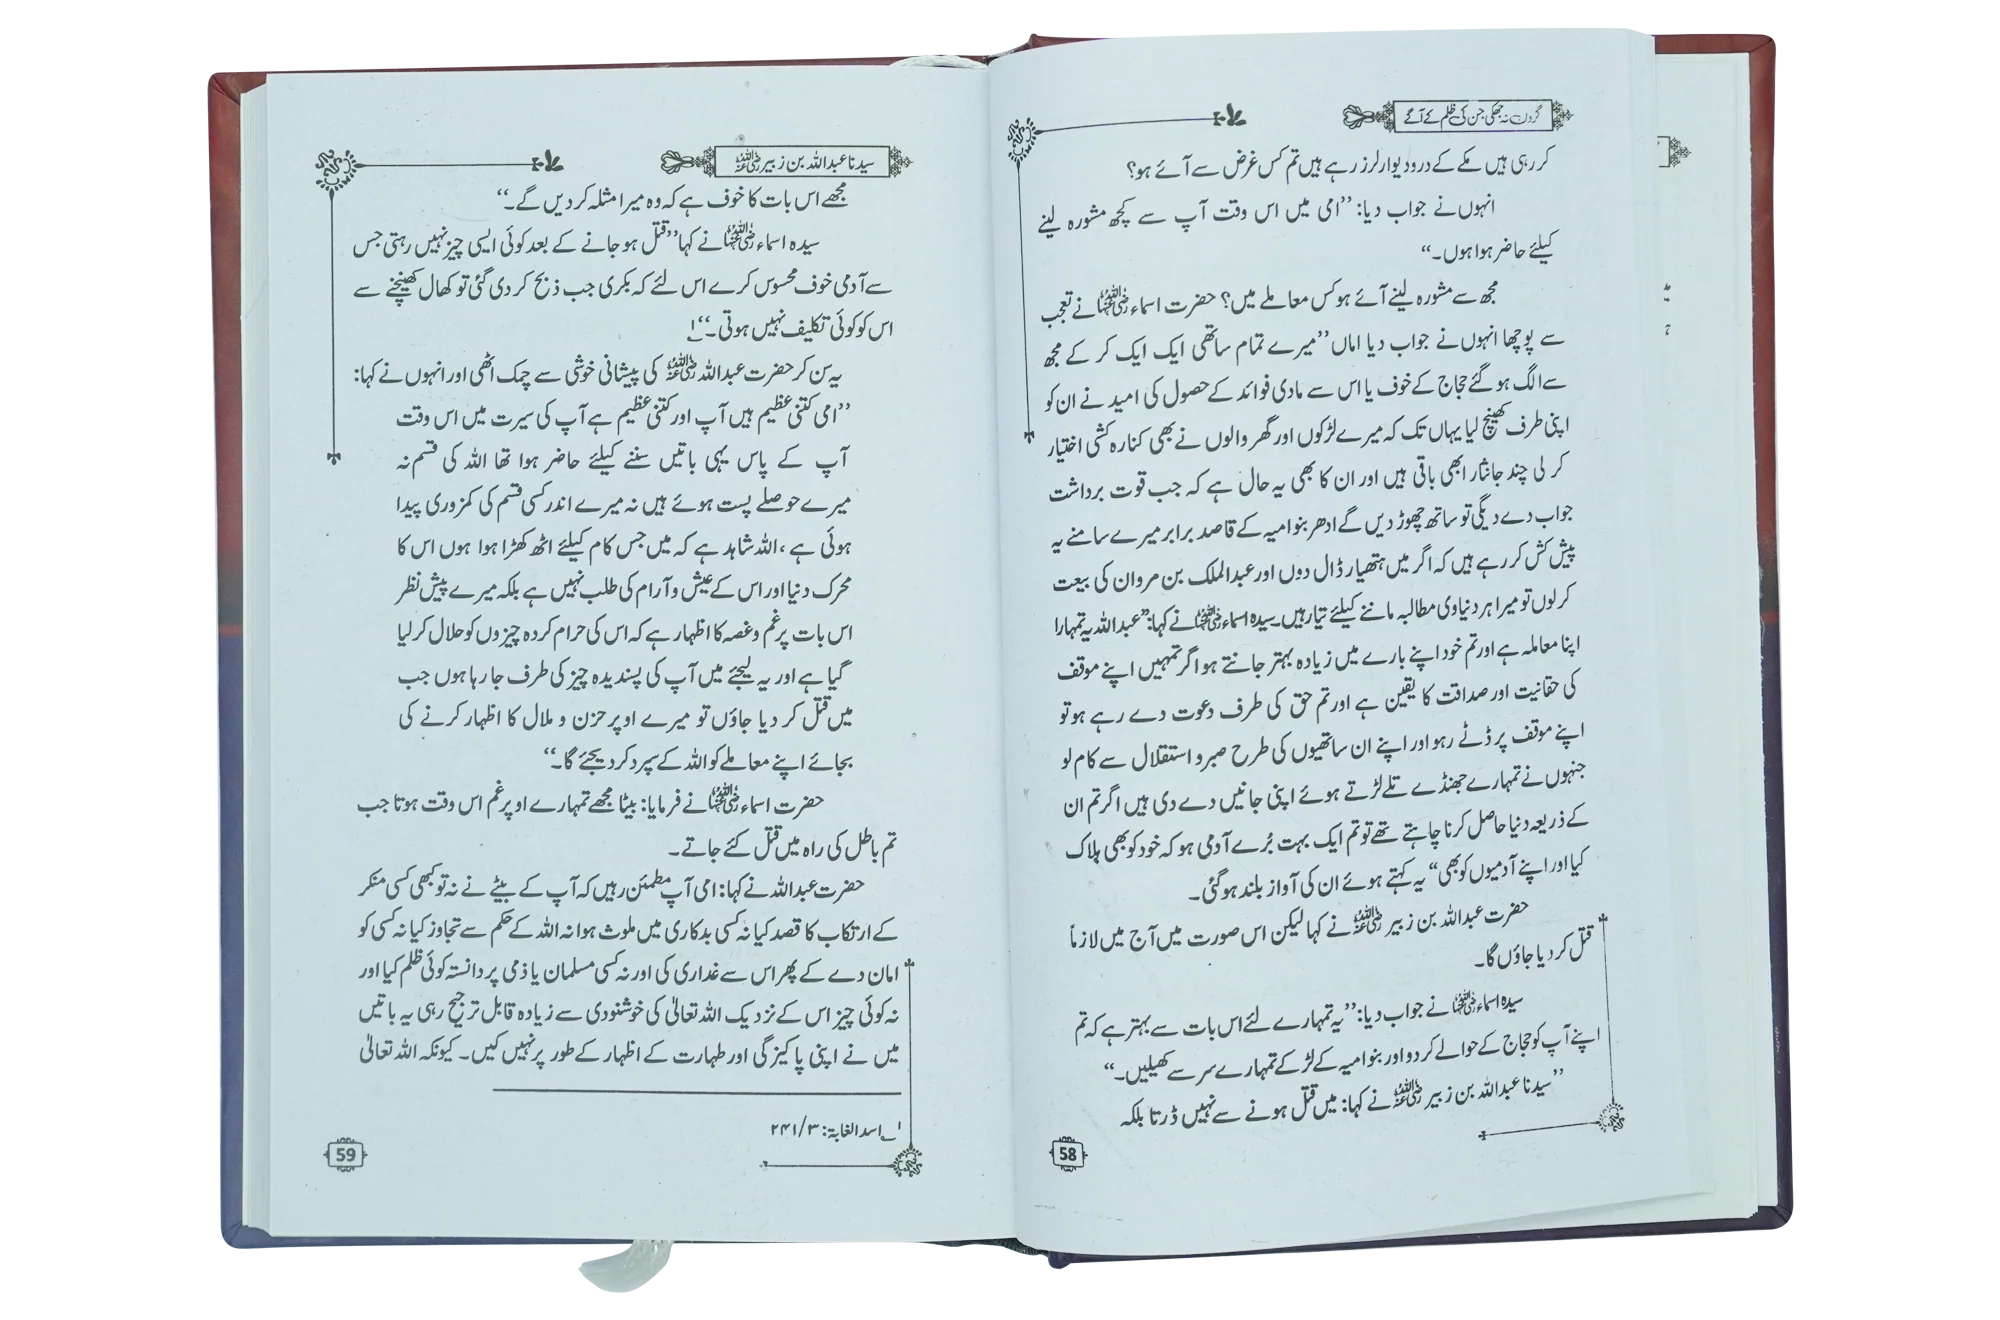 گردن نہ جھکی جن کی ظلم کے آگے
کر رہی ہیں مکے کے درودیوار لرز رہے ہیں تم کس غرض سے آئے ہو؟
انہوں نے جواب دیا: ’’امی میں اس وقت آپ سے کچھ مشورہ لینے
کیلئے حاضر ہوا ہوں۔‘‘
مجھ سے مشورہ لینے آئے ہو کس معاملے میں؟ حضرت اسماء رضی اللہ عنہا نے تعجب
سے پوچھا انہوں نے جواب دیا اماں ’’میرے تمام ساتھی ایک ایک کر کے مجھ
سے الگ ہو گئے حجاج کے خوف یا اس سے مادی فوائد کے حصول کی امید نے ان کو
اپنی طرف کھینچ لیا یہاں تک کہ میرے لڑکوں اور گھر والوں نے بھی کنارہ کشی اختیار
کر لی چند جانثار ابھی باقی ہیں اور ان کا بھی یہ حال ہے کہ جب قوت برداشت
جواب دے دیگی تو ساتھ چھوڑ دیں گے ادھر بنو امیہ کے قاصد برابر میرے سامنے یہ
پیش کش کر رہے ہیں کہ اگر میں ہتھیار ڈال دوں اور عبدالملک بن مروان کی بیعت
کرلوں تو میرا ہر دنیاوی مطالبہ ماننے کیلئے تیار ہیں۔ سیدہ اسماء رضی اللہ عنہا نے کہا: ’’عبداللہ یہ تمہارا
اپنا معاملہ ہے اور تم خود اپنے بارے میں زیادہ بہتر جانتے ہو اگر تمہیں اپنے موقف
کی حقانیت اور صداقت کا یقین ہے اور تم حق کی طرف دعوت دے رہے ہو تو
اپنے موقف پر ڈٹے رہو اور اپنے ان ساتھیوں کی طرح صبر و استقلال سے کام لو
جنہوں نے تمہارے جھنڈے تلے لڑتے ہوئے اپنی جانیں دے دی ہیں اگر تم ان
کے ذریعہ دنیا حاصل کرنا چاہتے تھے تو تم ایک بہت بُرے آدمی ہو کہ خود کو بھی ہلاک
کیا اور اپنے آدمیوں کو بھی‘‘ یہ کہتے ہوئے ان کی آواز بلند ہو گئی۔
حضرت عبداللہ بن زبیر رضی اللہ عنہ نے کہا لیکن اس صورت میں آج میں لازماً
قتل کر دیا جاؤں گا۔
سیدہ اسماء رضی اللہ عنہا نے جواب دیا: ’’یہ تمہارے لئے اس بات سے بہتر ہے کہ تم
اپنے آپ کو حجاج کے حوالے کر دو اور بنو امیہ کے لڑکے تمہارے سر سے کھیلیں۔‘‘
’’سیدنا عبداللہ بن زبیر رضی اللہ عنہ نے کہا: میں قتل ہونے سے نہیں ڈرتا بلکہ
58
سیدنا عبداللہ بن زبیر رضی اللہ عنہ
مجھے اس بات کا خوف ہے کہ وہ میرا مثلہ کر دیں گے۔‘‘
سیدہ اسماء رضی اللہ عنہا نے کہا ’’قتل ہو جانے کے بعد کوئی ایسی چیز نہیں رہتی جس
سے آدمی خوف محسوس کرے اس لئے کہ بکری جب ذبح کر دی گئی تو کھال کھینچنے سے
اس کو کوئی تکلیف نہیں ہوتی۔‘‘ ۱؎
یہ سن کر حضرت عبداللہ رضی اللہ عنہ کی پیشانی خوشی سے چمک اٹھی اور انہوں نے کہا:
’’امی کتنی عظیم ہیں آپ اور کتنی عظیم ہے آپ کی سیرت میں اس وقت
آپ کے پاس یہی باتیں سننے کیلئے حاضر ہوا تھا اللہ کی قسم نہ
میرے حوصلے پست ہوئے ہیں نہ میرے اندر کسی قسم کی کمزوری پیدا
ہوئی ہے، اللہ شاہد ہے کہ میں جس کام کیلئے اٹھ کھڑا ہوا ہوں اس کا
محرک دنیا اور اس کے عیش و آرام کی طلب نہیں ہے بلکہ میرے پیش نظر
اس بات پر غم و غصہ کا اظہار ہے کہ اس کی حرام کردہ چیزوں کو حلال کر لیا
گیا ہے اور یہ لیجئے میں آپ کی پسندیدہ چیز کی طرف جا رہا ہوں جب
میں قتل کر دیا جاؤں تو میرے اوپر حزن و ملال کا اظہار کرنے کی
بجائے اپنے معاملے کو اللہ کے سپرد کر دیجئے گا۔‘‘
حضرت اسماء رضی اللہ عنہا نے فرمایا: بیٹا مجھے تمہارے اوپر غم اس وقت ہوتا جب
تم باطل کی راہ میں قتل کئے جاتے۔
حضرت عبداللہ نے کہا: امی آپ مطمئن رہیں کہ آپ کے بیٹے نے نہ تو کبھی کسی منکر
کے ارتکاب کا قصد کیا نہ کسی بدکاری میں ملوث ہوا نہ اللہ کے حکم سے تجاوز کیا نہ کسی کو
امان دے کے پھر اس سے غداری کی اور نہ کسی مسلمان یا ذمی پر دانستہ کوئی ظلم کیا اور
نہ کوئی چیز اس کے نزدیک اللہ تعالیٰ کی خوشنودی سے زیادہ قابل ترجیح رہی یہ باتیں
میں نے اپنی پاکیزگی اور طہارت کے اظہار کے طور پر نہیں کیں۔ کیونکہ اللہ تعالیٰ
۱؎ اسد الغابۃ: ۳/۲۴۱
59